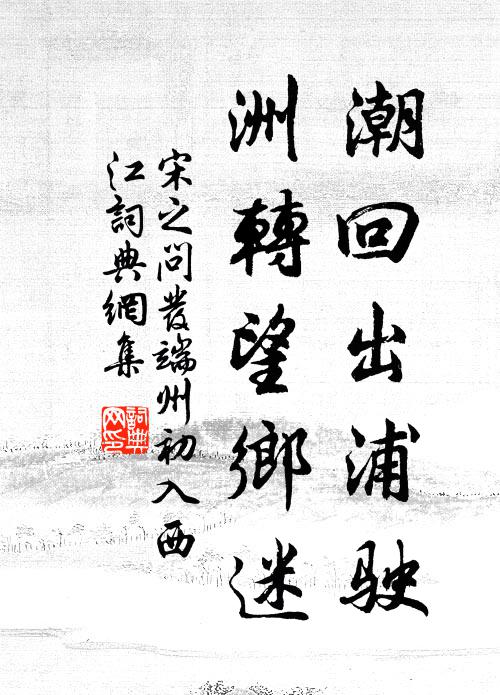 潮回出浦駛
洲轉望鄉迷
宋之問發端州初入西
江詞典網集
詞典網印